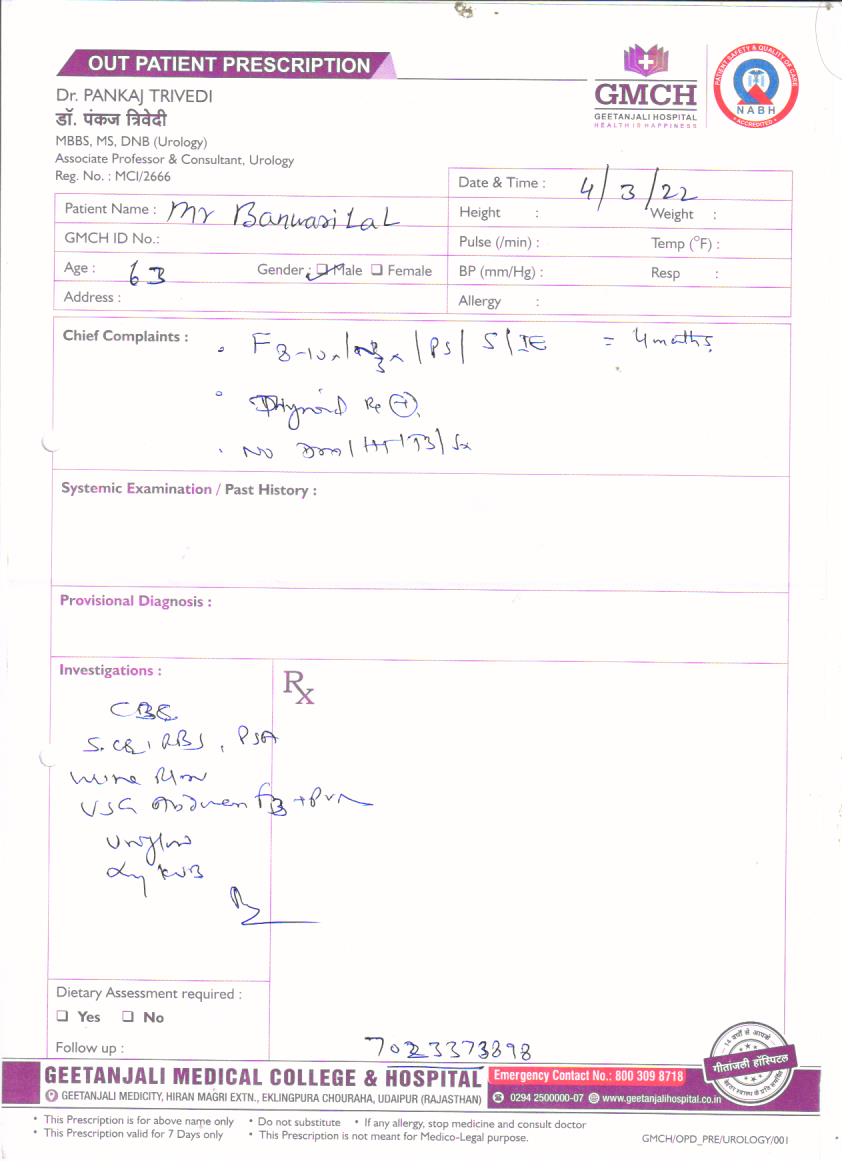 OUT PATIENT PRESCRIPTION
Dr. PANKAJ TRIVEDI
डॉ. पंकज त्रिवेदी
MBBS, MS, DNB (Urology)
Associate Professor & Consultant, Urology
Reg. No. : MCI/2666
GMCH
GEETANJALI HOSPITAL
HEALTH IS HAPPINESS
PATIENT SAFETY & QUALITY OF CARE
NABH
ACCREDITED
Date & Time : 4/3/22
Patient Name : Mr Banwari Lal
Height : Weight :
GMCH ID No.:
Pulse (/min) : Temp (°F) :
Age : 63 Gender : Male Female
BP (mm/Hg) : Resp :
Address :
Allergy :
Chief Complaints :
F 8-10x / PS / S / IE = 4 months
Thyroid Rx +
NO / HT / TB / Sx
Systemic Examination / Past History :
Provisional Diagnosis :
Investigations :
Rx
CBC
S. Cr, RBS, PSA
urine R/M
USG Abdomen FB + PVR
Uroflow
Xray KUB
Dietary Assessment required :
Yes No
Follow up :
7023373898
गीतांजली हॉस्पिटल
GEETANJALI MEDICAL COLLEGE & HOSPITAL
Emergency Contact No.: 800 309 8718
GEETANJALI MEDICITY, HIRAN MAGRI EXTN., EKLINGPURA CHOURAHA, UDAIPUR (RAJASTHAN)
0294 2500000-07 www.geetanjalihospital.co.in
• This Prescription is for above name only • Do not substitute • If any allergy, stop medicine and consult doctor
• This Prescription valid for 7 Days only • This Prescription is not meant for Medico-Legal purpose.
GMCH/OPD_PRE/UROLOGY/001